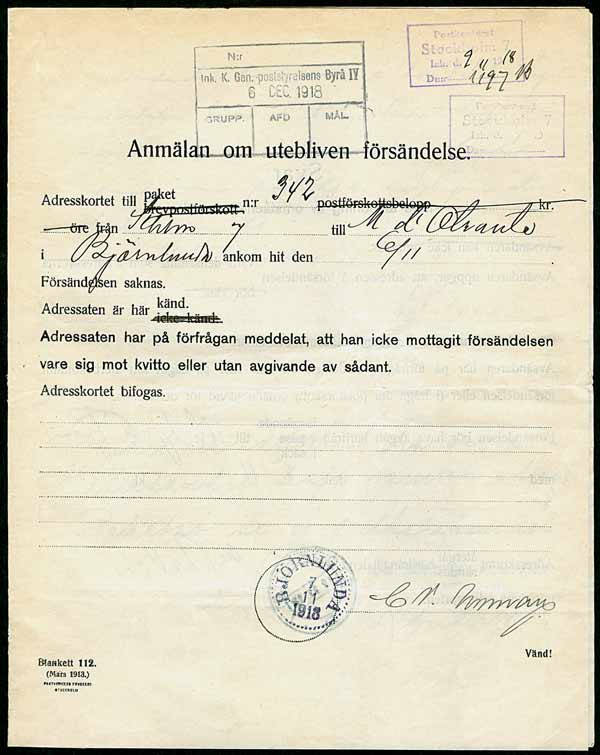 Postkontoret
Stockholm 7
Ink. d. 9 11 18
Dnr 1197
N:r
Ink. K. Gen.-poststyrelsens Byrå IV
6 DEC. 1918
GRUPP. AFD MÅL
Stockholm 7
Anmälan om utebliven försändelse.
Adresskortet till paket brevpostförskott n:r 342 postförskottsbelopp kr.
öre från Sthlm 7 till M d'
i Björnlunda ankom hit den 6/11
Försändelsen saknas.
Adressaten är här känd.
icke känd.
Adressaten har på förfrågan meddelat, att han icke mottagit försändelsen
vare sig mot kvitto eller utan avgivande av sådant.
Adresskortet bifogas.
BJÖRNLUNDA
7
11
1918
Vänd!
Blankett 112.
(Mars 1913.)
STOCKHOLM